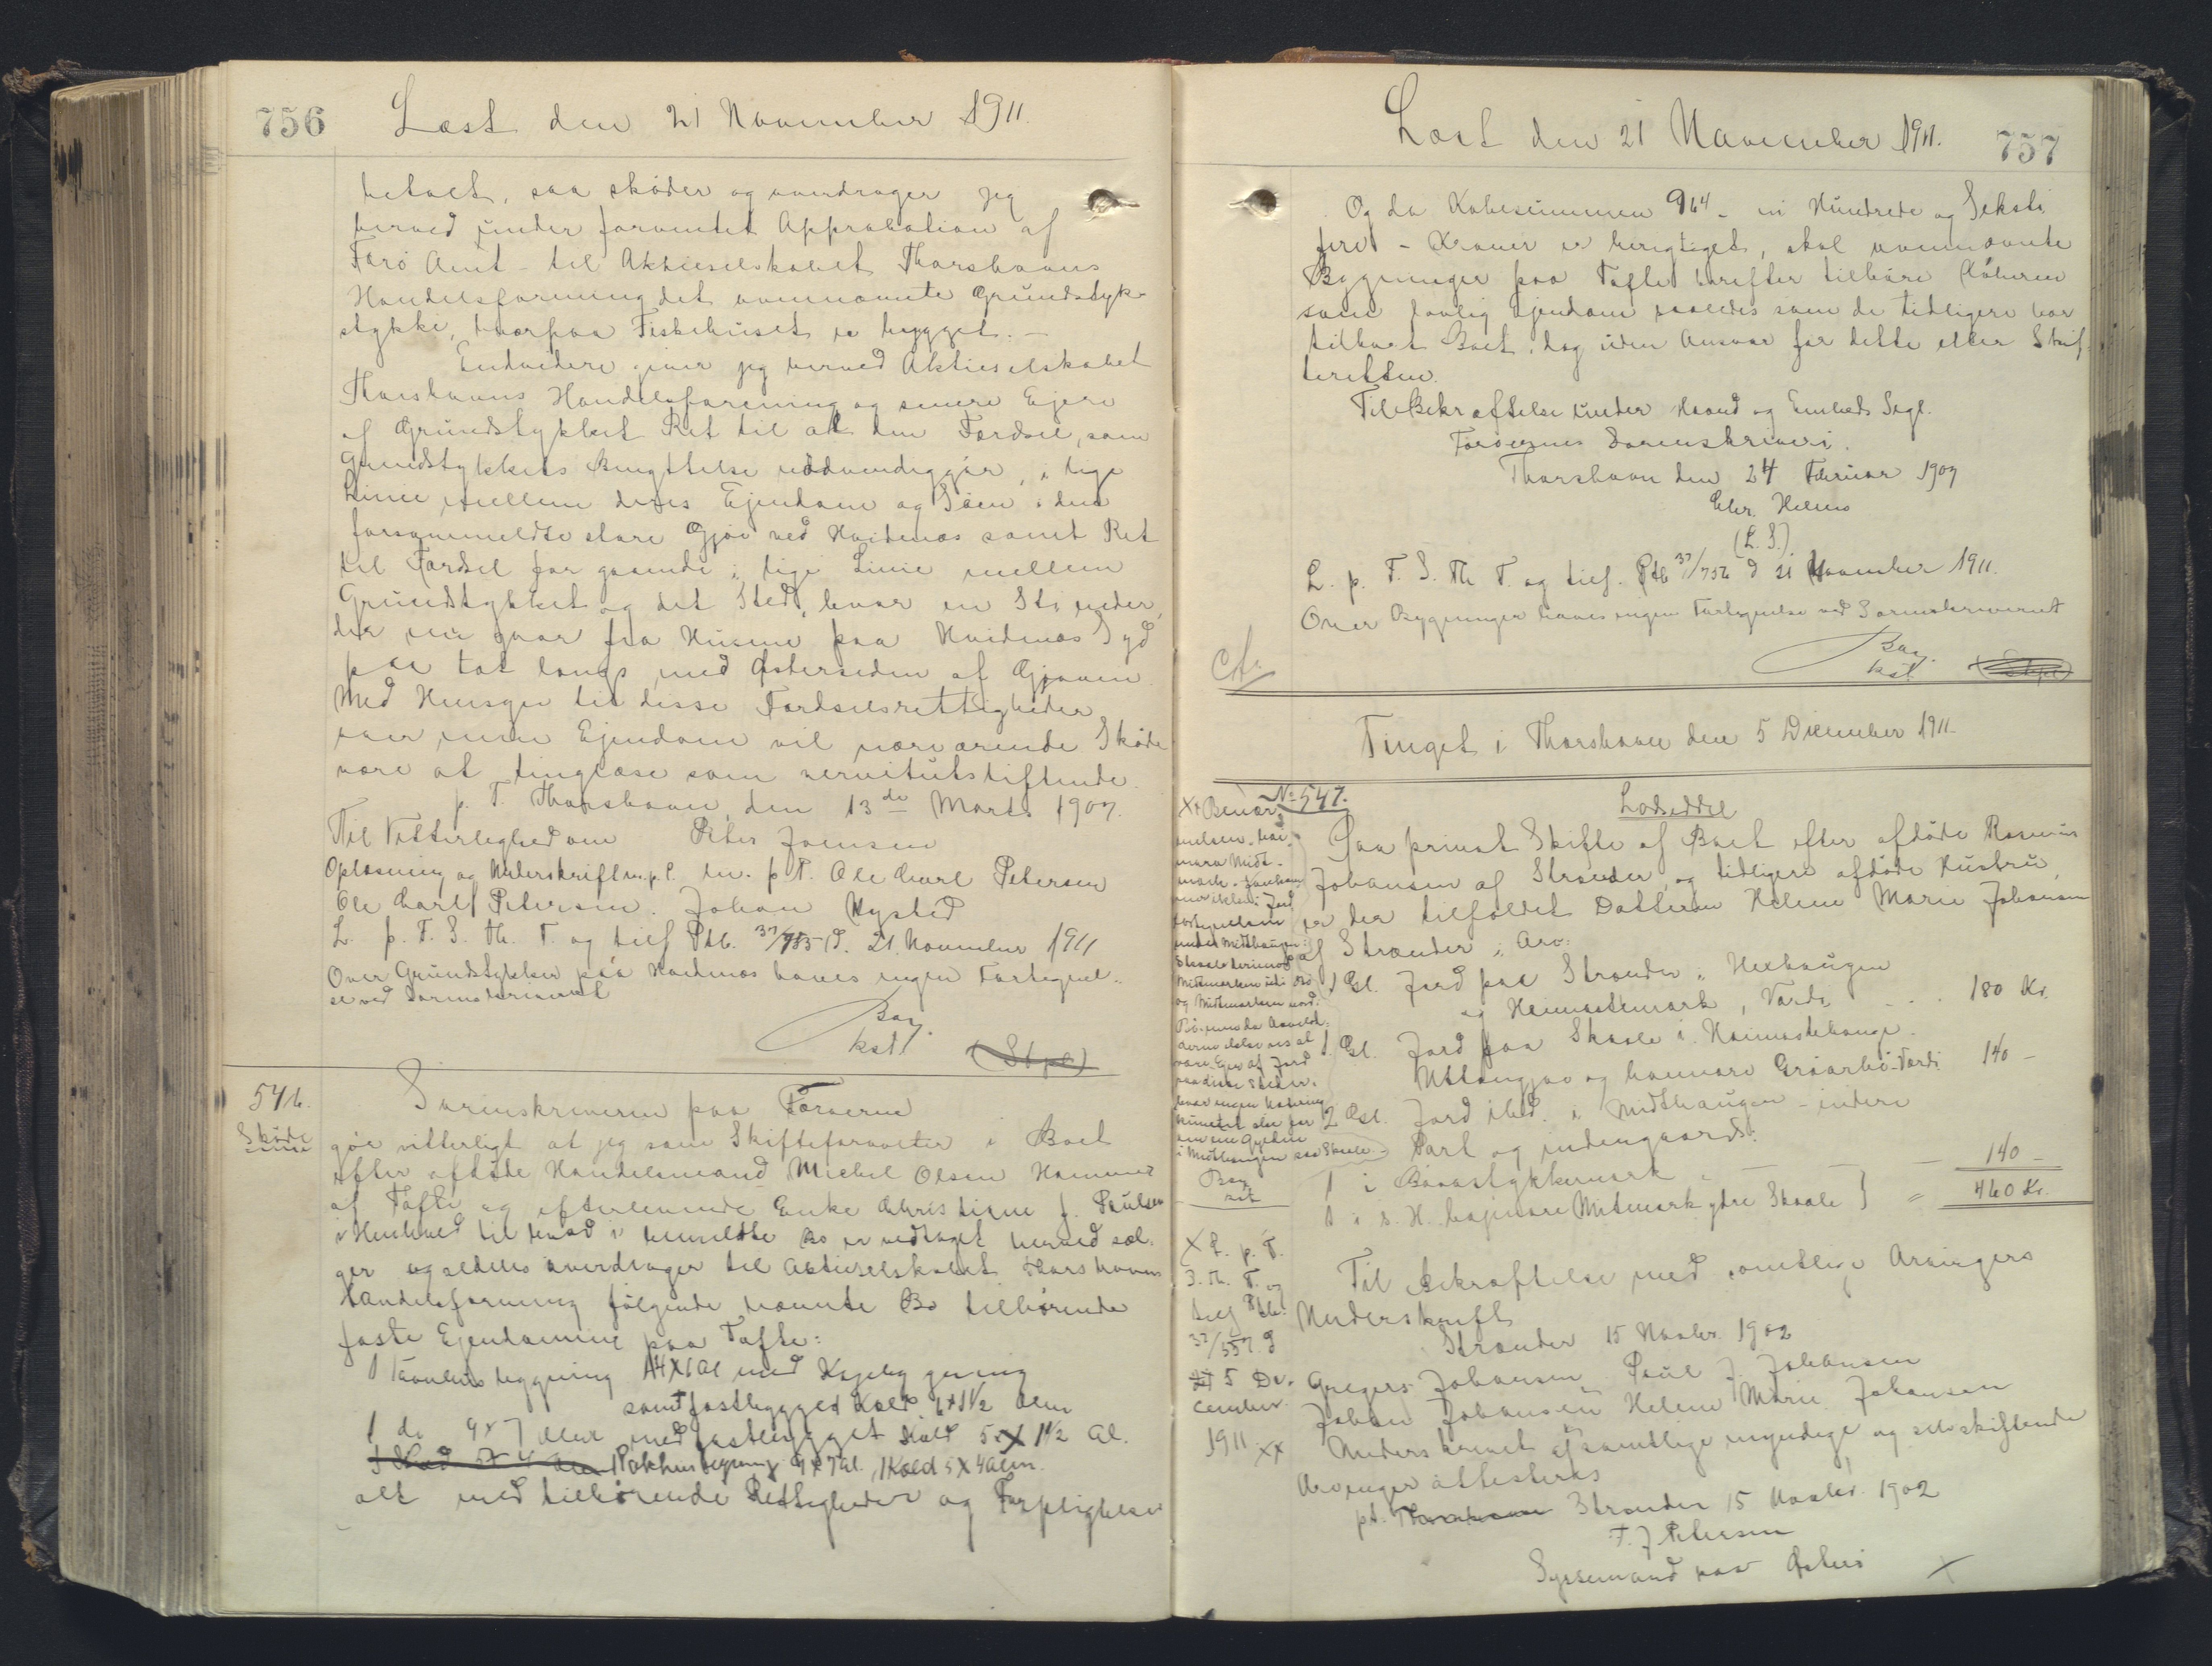 756
Læst den 21 November 1911.
betalt, saa skøder og overdrager jeg
herved under forventet Approbation af
Færø Amt til Aktieselskabet Thorshavns
Handelsforening det ovennævnte Grundstyk-
stykke, hvorpaa Fiskehuset er bygget. —
Endvidere giver jeg herved Aktieselskabet
Thorshavns Handelsforening og senere Ejere
af Grundstykket Ret til al den Færdsel, som
Grundstykkets Benyttelse nødvendiggør, i lige
Linie mellem deres Ejendom og Søen i den
forommeldte store Gjov ved Hvitenæs samt Ret
til Færdsel for gaaende i lige Linie mellem
Grundstykket og det Sted, hvor en Sti neder,
der nu gaar fra Husene paa Hvidenæs Syd
paa tæt langs med Østersiden af Gjoven.
Med Hensyn til disse Færdselsrettigheder
over min Ejendom vil nærværende Skøde
være at tinglæse som servitutstiftende.
p. T. Thorshavn, den 13de Marts 1907.
Til Vitterlighed om Peter Joensen
Oplæsning og Underskrift m. p. P. en. p. T. Ole Carl Petersen
Ole Carl Petersen. Johan Nysted
L. p. F. S. Th. T. og tilf Ptb. 37/755 d. 21. November 1911
Over Grundstykker paa Hvidenæs haves ingen Fortegnel-
se ved Sorenskriveriet
Bay.
kst.
(Stpl)
546.
Skøde
Sorenskriveren paa Færøerne
gør vitterligt at jeg som Skifteforvalter i Boet
efter afdøde Handelsmand Michel Olsen Hammer
af Tofte og efterlevende Enke Christiane f. Poulsen
i Henhold til hvad i bemeldte Bo er vedtaget herved sæl-
ger og aldeles overdrager til Aktieselskabet Thorshavns
Handelsforening følgende nævnte Bo tilhørende
faste Ejendomme paa Tofte:
samt fastbygget Kold 6×1½ Alen
1 do 9×7 Alen med fastbygget Kold 5×1½ Al.
1 Pakhusbygning 9×7 Al. 1 Kold 5×4 Alen.
alt med tilhørende Rettigheder og Forpligtelser
Læst den 21 November 1911.
757
Og da Købesummen 964 – ni Hundrede og Seksti
fire – Kroner er berigtiget, skal ovennævnte
Bygninger paa Tofte herefter tilhøre Køberen
som lovlig Ejendom saaledes som de tidligere har
tilhørt Boet, dog uden Ansvar for dette eller Skif-
teretten.
Til Bekræftelse under Haand og Embeds Segl.
Færøernes Sorenskriveri.
Thorshavn den 24 Februar 1907
Chr. Helms
(L. S.)
L. p. F. S. Th T. og tilf. Ptb 37/756 d 21 November 1911.
Over Bygninger haves ingen Fortegnelse ved Sorenskriveriet
Bay.
kst
(Stpl)
Tinget i Thorshavn den 5 December 1911.
No 547.
Lodseddel
Paa privat Skifte af Boet efter afdøde Rasmus
Johansen af Strænder og tidligere afdøde Hustru,
er der tilfaldet Datteren Helene Marie Johansen
af Strænder i Arv:
1 Gl. Jord paa Strænder i Heehaugen
og Heimsetemark, Værdi . . . 180 Kr.
1 Gl. Jord paa Skaale i Heimastehauge.
Uttangjao og hannare Gróarbø. Værdi 140 –
2 Gl. Jord ibd. i Midthaugen – indere
Part og indengaards.
1 i Bøvastykkemark – 140 –
460 Kr.
××
under Midthaugen:
og Midtmarken nord.
være Ejer af Jord
paa disse Steder.
i Midthaugen paa Skaale.
Bay
kst
× L. p. F.
S. Th. T. og
tilf Ptb.
37/557 d
5 De-
cember
1911 ××
Til Bekræftelse med samtlige Arvingers
Underskrift
Strænder 15 Novbr. 1902
Gregers Johansen Poul J. Johansen
Johan Johansen Helene Marie Johansen
Underskrevet af samtlige myndige og selvskiftende
Arvinger attesteres
pt. Strænder 15 Novbr. 1902
F. J. Petersen
Sysselmand paa Østerø
×